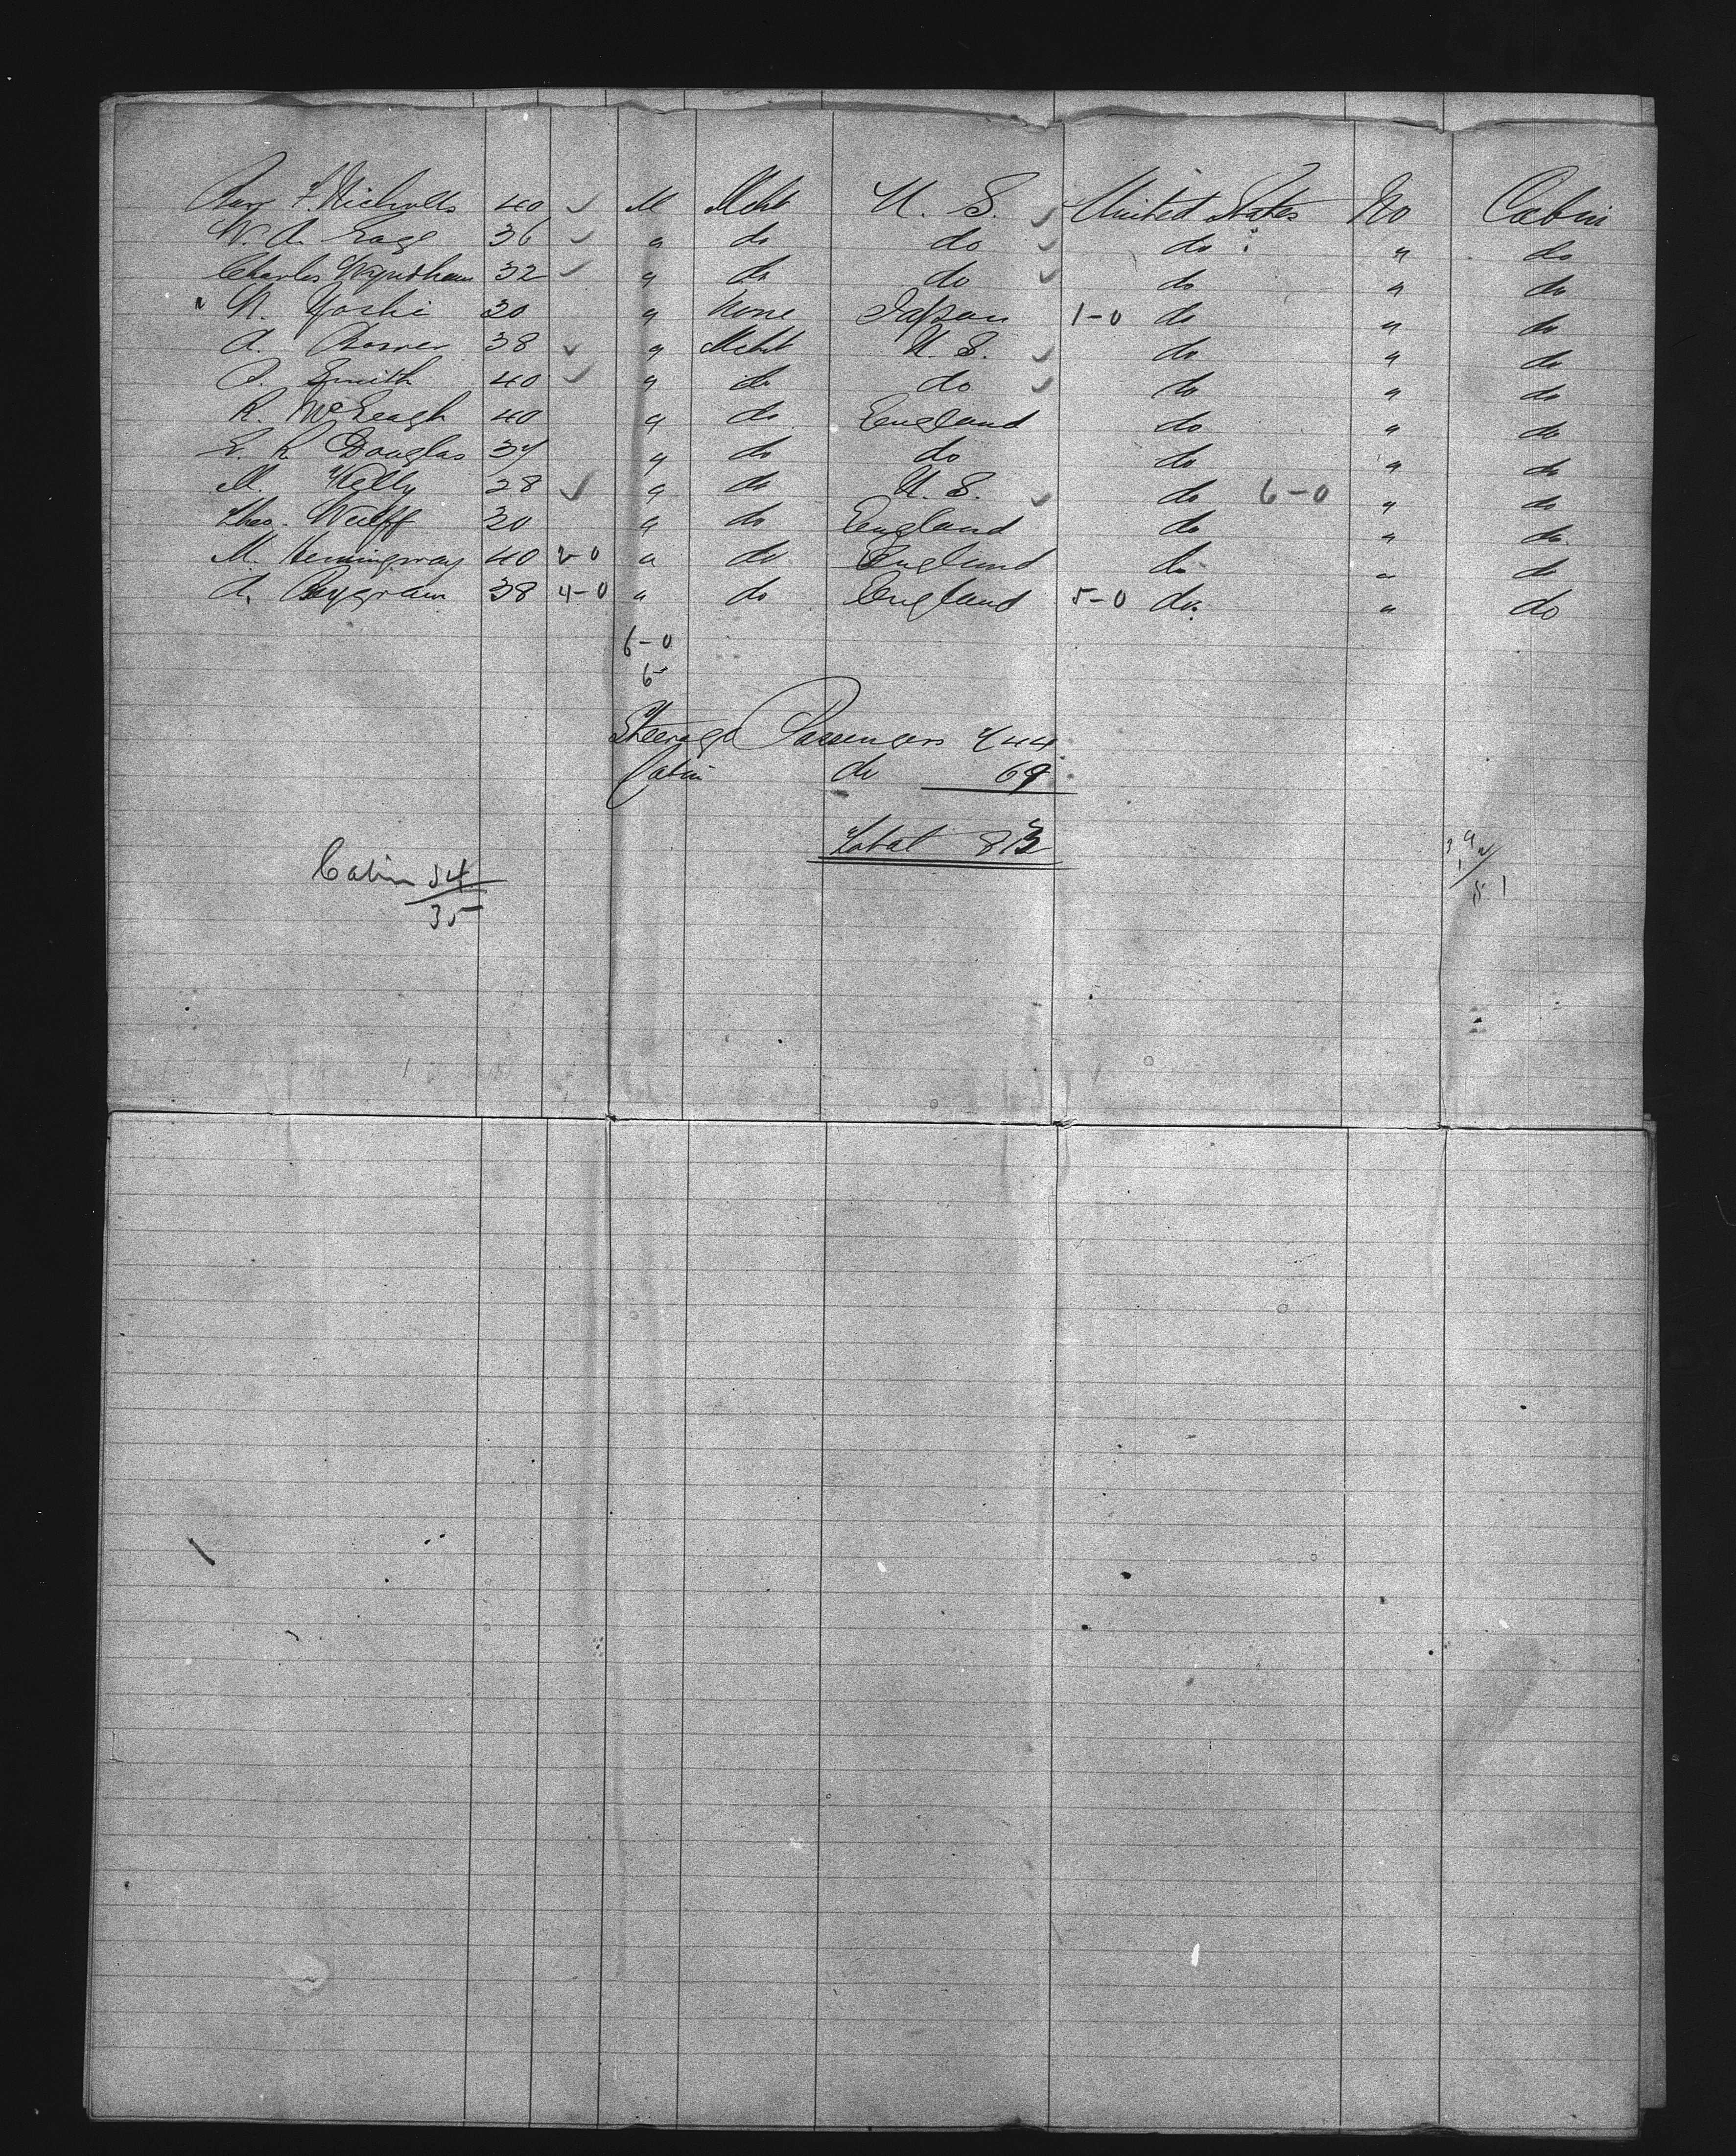 F Nicholls 40 ✓ M Mcht U. S. ✓ United States No Cabin
W. A. 36 ✓ " do do ✓ do " do
Charles Wyndham 32 ✓ " do do ✓ do " do
N. Yoshi 30 " None Japan 1-0 do " do
A. 38 ✓ " Mcht U. S. ✓ do " do
Smith 40 ✓ " do do ✓ do " do
R. 40 " do England do " do
E. R. Douglas 37 " do do do " do
M. Kelly 28 ✓ " do U. S. ✓ do 6-0 " do
Theo. Wulff 30 " do England do " do
M. Hemingway 40 2-0 " do England do " do
A. 38 4-0 " do England 5-0 do " do
6-0
6
Steerage Passengers 744
Cabin do 69
Total 813
Cabin 34
35